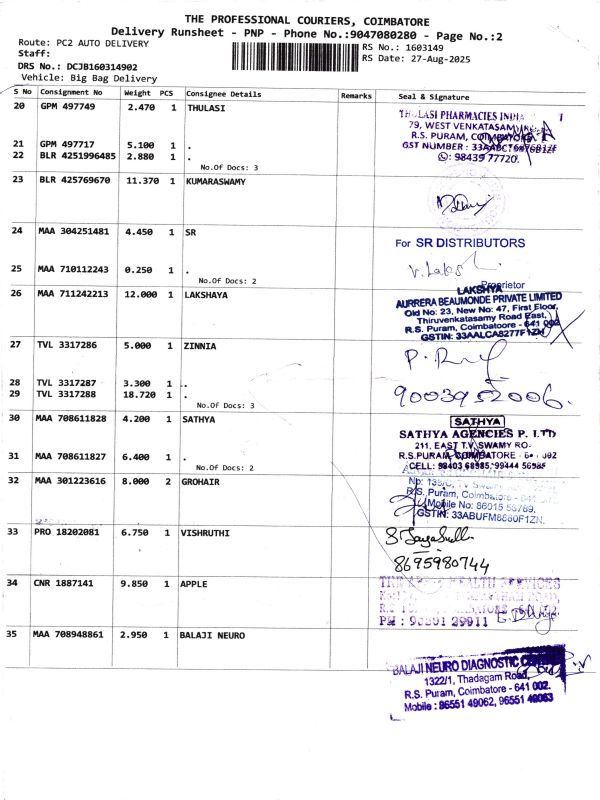 THE PROFESSIONAL COURIERS, COIMBATORE
Delivery Runsheet - PNP - Phone No.:9047080280 - Page No.:2
Route: PC2 AUTO DELIVERY
RS No.: 1603149
Staff:
RS Date: 27-Aug-2025
DRS No.: DCJB160314902
Vehicle: Big Bag Delivery
S No Consignment No Weight PCS Consignee Details Remarks Seal & Signature
20 GPM 497749 2.470 1 THULASI
THULASI PHARMACIES INDIA
79, WEST VENKATASAM
R.S. PURAM, COIMBATORE
GST NUMBER :
21 GPM 497717 5.100 1 .
22 BLR 4251996485 2.880 1 .
: 98439 77720.
No.Of Docs: 3
23 BLR 425769670 11.370 1 KUMARASWAMY
24 MAA 304251481 4.450 1 SR
For SR DISTRIBUTORS
25 MAA 710112243 0.250 1 .
V. Laks
No.Of Docs: 2
Proprietor
26 MAA 711242213 12.000 1 LAKSHAYA
LAKSHYA
AURRERA BEAUMONDE PRIVATE LIMITED
Old No: 23, New No: 47, First Floor,
Thiruvenkatasamy Road East,
R.S. Puram, Coimbatore - 641 002
GSTIN: 33AALCA8277F1ZM
27 TVL 3317286 5.000 1 ZINNIA
28 TVL 3317287 3.300 1 .
29 TVL 3317288 18.720 1 .
9003952006.
No.Of Docs: 3
30 MAA 708611828 4.200 1 SATHYA
SATHYA
SATHYA AGENCIES P. LTD
211, EAST T.V. SWAMY RO
R.S.PURAM, COIMBATORE
31 MAA 708611827 6.400 1 .
CELL: 98403 68985, 99444 56985
No.Of Docs: 2
32 MAA 301223616 8.000 2 GROHAIR
R.S. Puram, Coimbatore
Mobile No: 86015 56789.
GSTIN: 33ABUFM8680F1ZN.
33 PRO 18202081 6.750 1 VISHRUTHI
8695980744
34 CNR 1887141 9.850 1 APPLE
HEALTH SERVICES
35 MAA 708948861 2.950 1 BALAJI NEURO
BALAJI NEURO DIAGNOSTIC
1322/1, Thadagam Road,
R.S. Puram, Coimbatore - 641 002.
Mobile : 96551 49062, 96551 49063